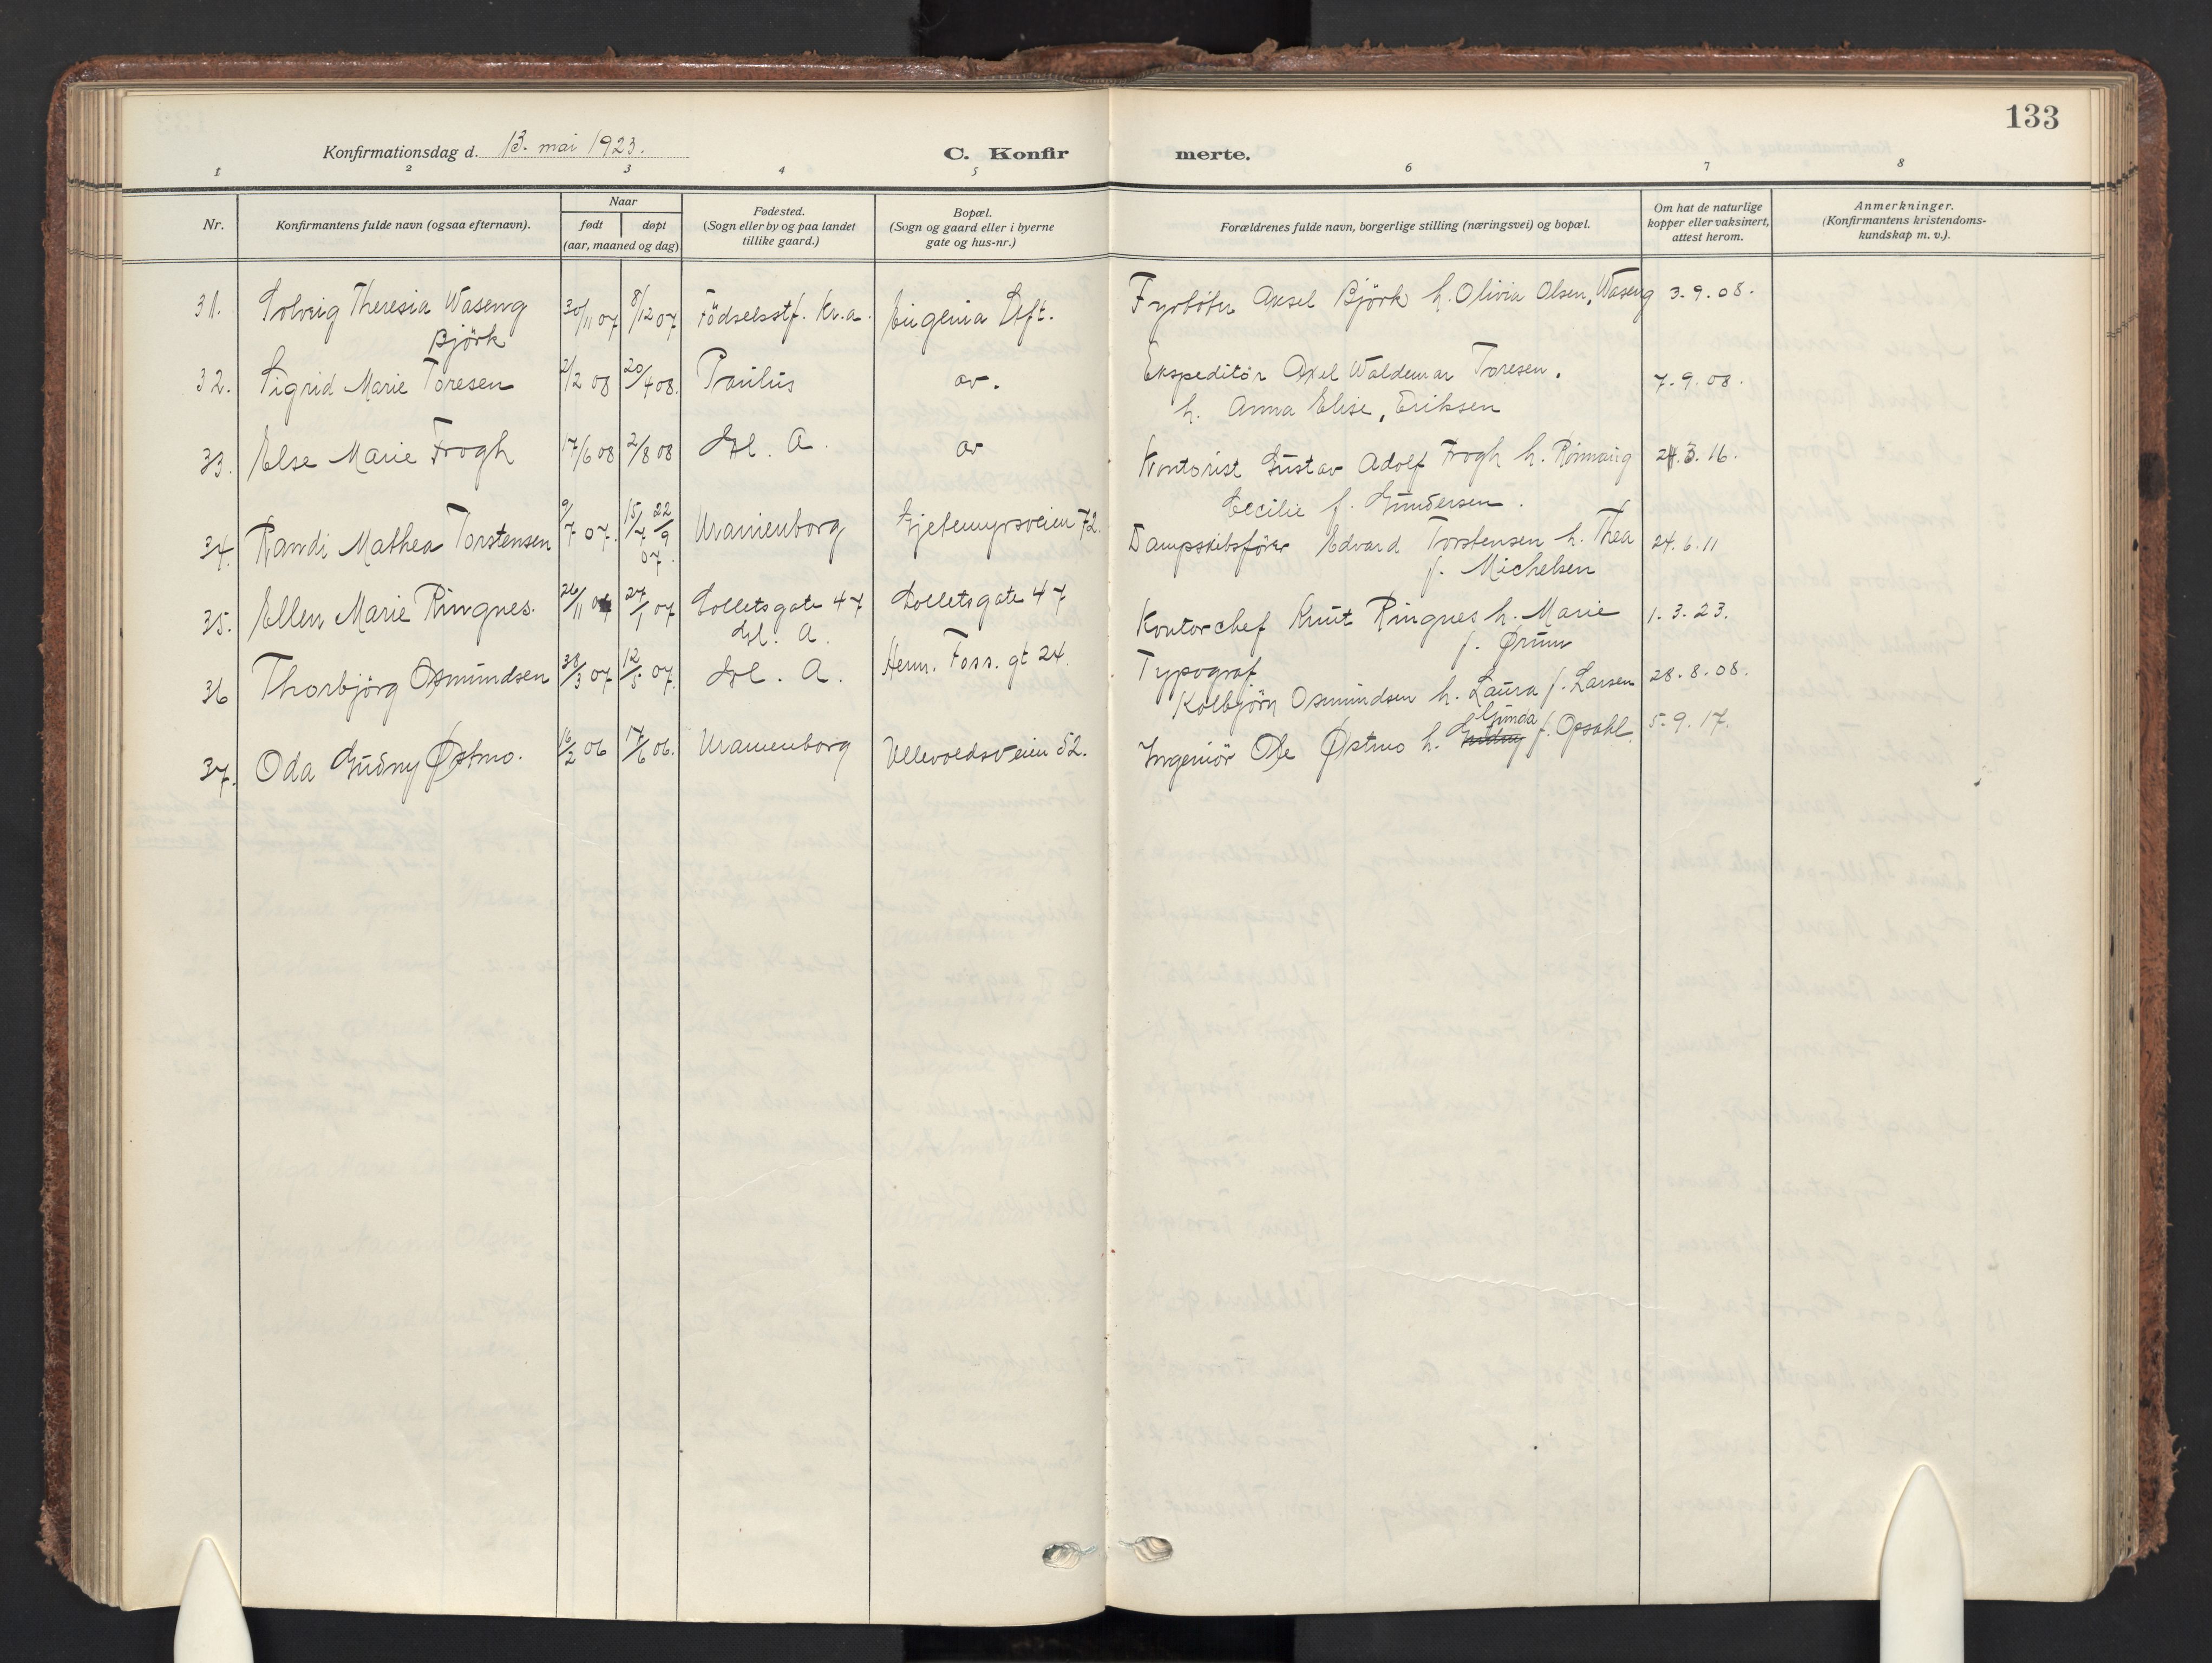 133
Konfirmationsdag d. 13. mai 1923.
C. Konfir merte.
1 2 3 4 5 6 7 8
Nr.
Konfirmantens fulde navn (ogsaa efternavn).
Naar
født
døpt
(aar, maaned og dag)
Fødested.
(Sogn eller by og paa landet
tillike gaard.)
Bopæl.
(Sogn og gaard eller i byerne
gate og hus-nr.)
Forældrenes fulde navn, borgerlige stilling (næringsvei) og bopæl.
Om hat de naturlige
kopper eller vaksinert,
attest herom.
Anmerkninger.
(Konfirmantens kristendoms-
kundskap m. v.).
31. Solveig Theresia Waseng 30/11 07 8/12 07 Födselsstf. Kr.a. Eugenia Stft. Fyrböter Aksel Björk h. Olivia Olsen, Waseng 3.9.08.
Björk
32. Sigrid Marie Toresen 2/2 08 20/4 08. Paulus av. Ekspeditör Axel Waldemar Toresen. 7.9.08.
h. Anna Elise, Eriksen
33. Else Marie Frogh 17/6 08 2/8 08 Gl. A. av Kontorist Gustav Adolf Frogh h. Rönnaug 24.3.16.
Cecilie f. Gundersen.
34. Randi Mathea Torstensen 9/7 07. 22/9 07. Uranienborg Gjetemyrsveien 72. Dampskibsförer Edvard Torstensen h. Thea 24.6.11
f. Michelsen
35. Ellen Marie Ringnes. 26/11 27/1 07 Colletsgate 47 Colletsgate 47 Kontorchef Knut Ringnes h. Marie 1.3.23.
Gl. A. f. Ørum
36 Thorbjörg Osmundsen /3 07 12/5 07. Gl. A. Herm. Foss. gt 24. Typograf
Kolbjörn Osmundsen h. Laura f. Larsen 28.8.08.
37. Oda Gudny Østmo. 16/2 06 17/6 06. Uranienborg Ullevoldsveien 52. Ingeniör Ole Østmo h. Gudny Gunda f. Opsahl. 5.9.17.